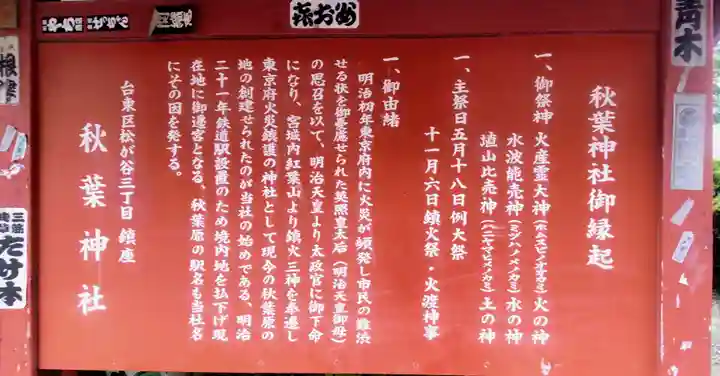 秋葉神社御縁起
一、御祭神 火産霊大神(ホムスビノオオカミ)火の神
水波能売神(ミヅハノメノカミ)水の神
埴山比売神(ハニヤマヒメノカミ)土の神
一、主祭日五月十八日例大祭
十一月六日鎮火祭・火渡神事
一、御由緒
明治初年東京府内に火災が頻発し市民の難渋
せる状を御憂慮せられた英照皇太后(明治天皇御母)
の思召を以て、明治天皇より太政官に御下命
になり、宮城内紅葉山より鎮火三神を奉遷し
東京府火災鎮護の神社として現今の秋葉原の
地の創建せられたのが当社の始めである、明治
二十一年鉄道駅設置のため境内地を払下げ現
在地に御遷宮となる、秋葉原の駅名も当社名
にその因を発する。
台東区松が谷三丁目 鎮座
秋葉神社
青木
根津